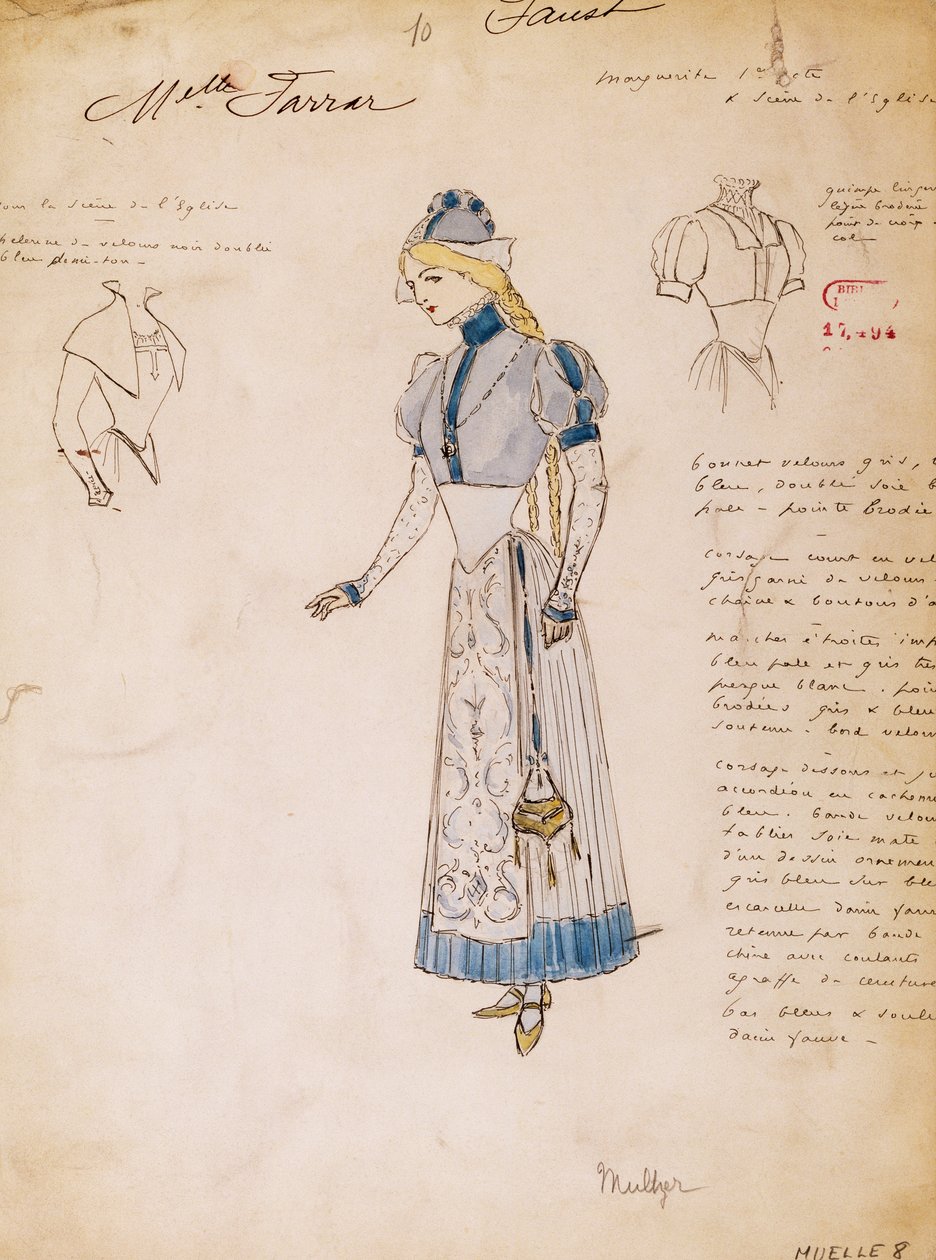 10
Faust
Melle Farrar
Marguerite 1er acte
& Scène de l'Eglise
pour la scène de l'Eglise
pelerine de velours noir doublé
bleu demi-ton -
guimpe linger
broderie
point de croix
col
BIBL
17,494
bonnet velours gris,
bleu, doublé soie b
pale - pointe brodée
corsage court en vel
gris garni de velours
chaine & boutons d'a
manches étroites imp
bleu pale et gris très
presque blanc. poi
brodées gris & bleu
soutenu - bord velou
corsage dessous et ju
accordéon en cachem
bleu. bande velou
tablier soie mate
d'un dessin ornemen
gris bleu sur ble
escarcelle daim fauve
retenue par bande
chine avec coulants
agraffe de ceinture
bas bleus & soulie
daim fauve -
Mulhzer
MUELLE 8